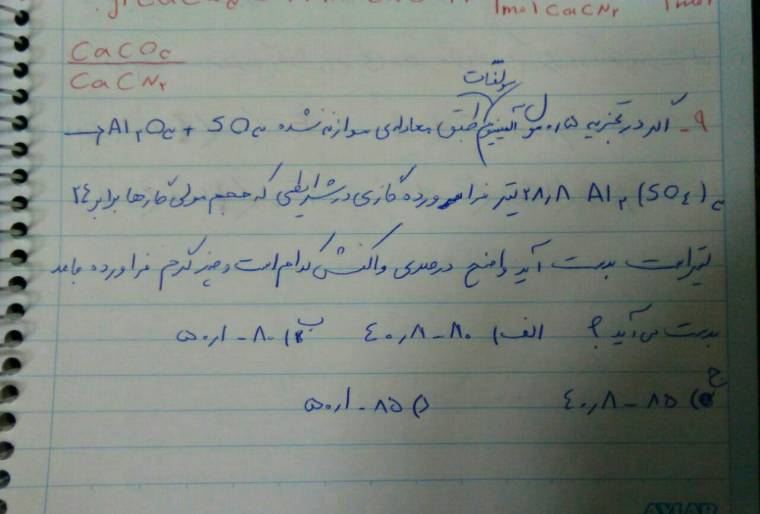 CaCO۳
CaCN۲
1mol CaCN۲ 1mol
سولفات
۹- اگر در تجزیه ۰٫۵ مول آلومینیوم طبق معادله‌ی موازنه نشده Al۲O۳ + SO۳ →
Al۲(SO۴)۳ ۲۸٫۸ لیتر فراورده گازی در شرایطی که حجم مولی گازها برابر ۲۴
لیتر است بدست آید واضح درصدی واکنش کدام است و چند گرم فراورده جامد
بدست می آید ؟ الف) ۸۰ - ۴۰٫۸ ب) ۸۰ - ۵۰٫۱
ج) ۸۵ - ۴۰٫۸ د) ۸۵ - ۵۰٫۱